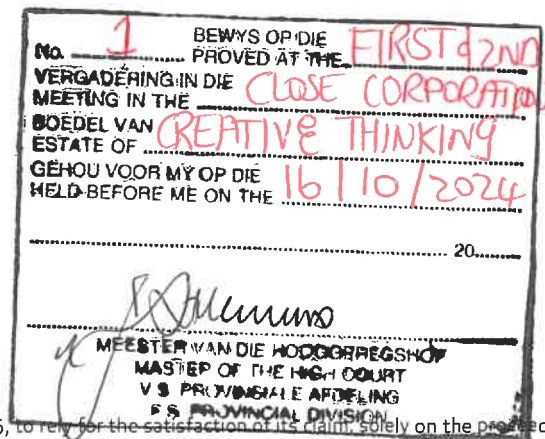 No. 1 BEWYS OP DIE
PROVED AT THE FIRST & 2ND
VERGADERING IN DIE
MEETING IN THE CLOSE CORPORATION
BOEDEL VAN
ESTATE OF CREATIVE THINKING
GEHOU VOOR MY OP DIE
HELD BEFORE ME ON THE 16/10/2024
20
MEESTER VAN DIE HOOGGEREGSHOF
MASTER OF THE HIGH COURT
V S PROVINSIALE AFDELING
F S PROVINCIAL DIVISION
, to rely for the satisfaction of its claim, solely on the